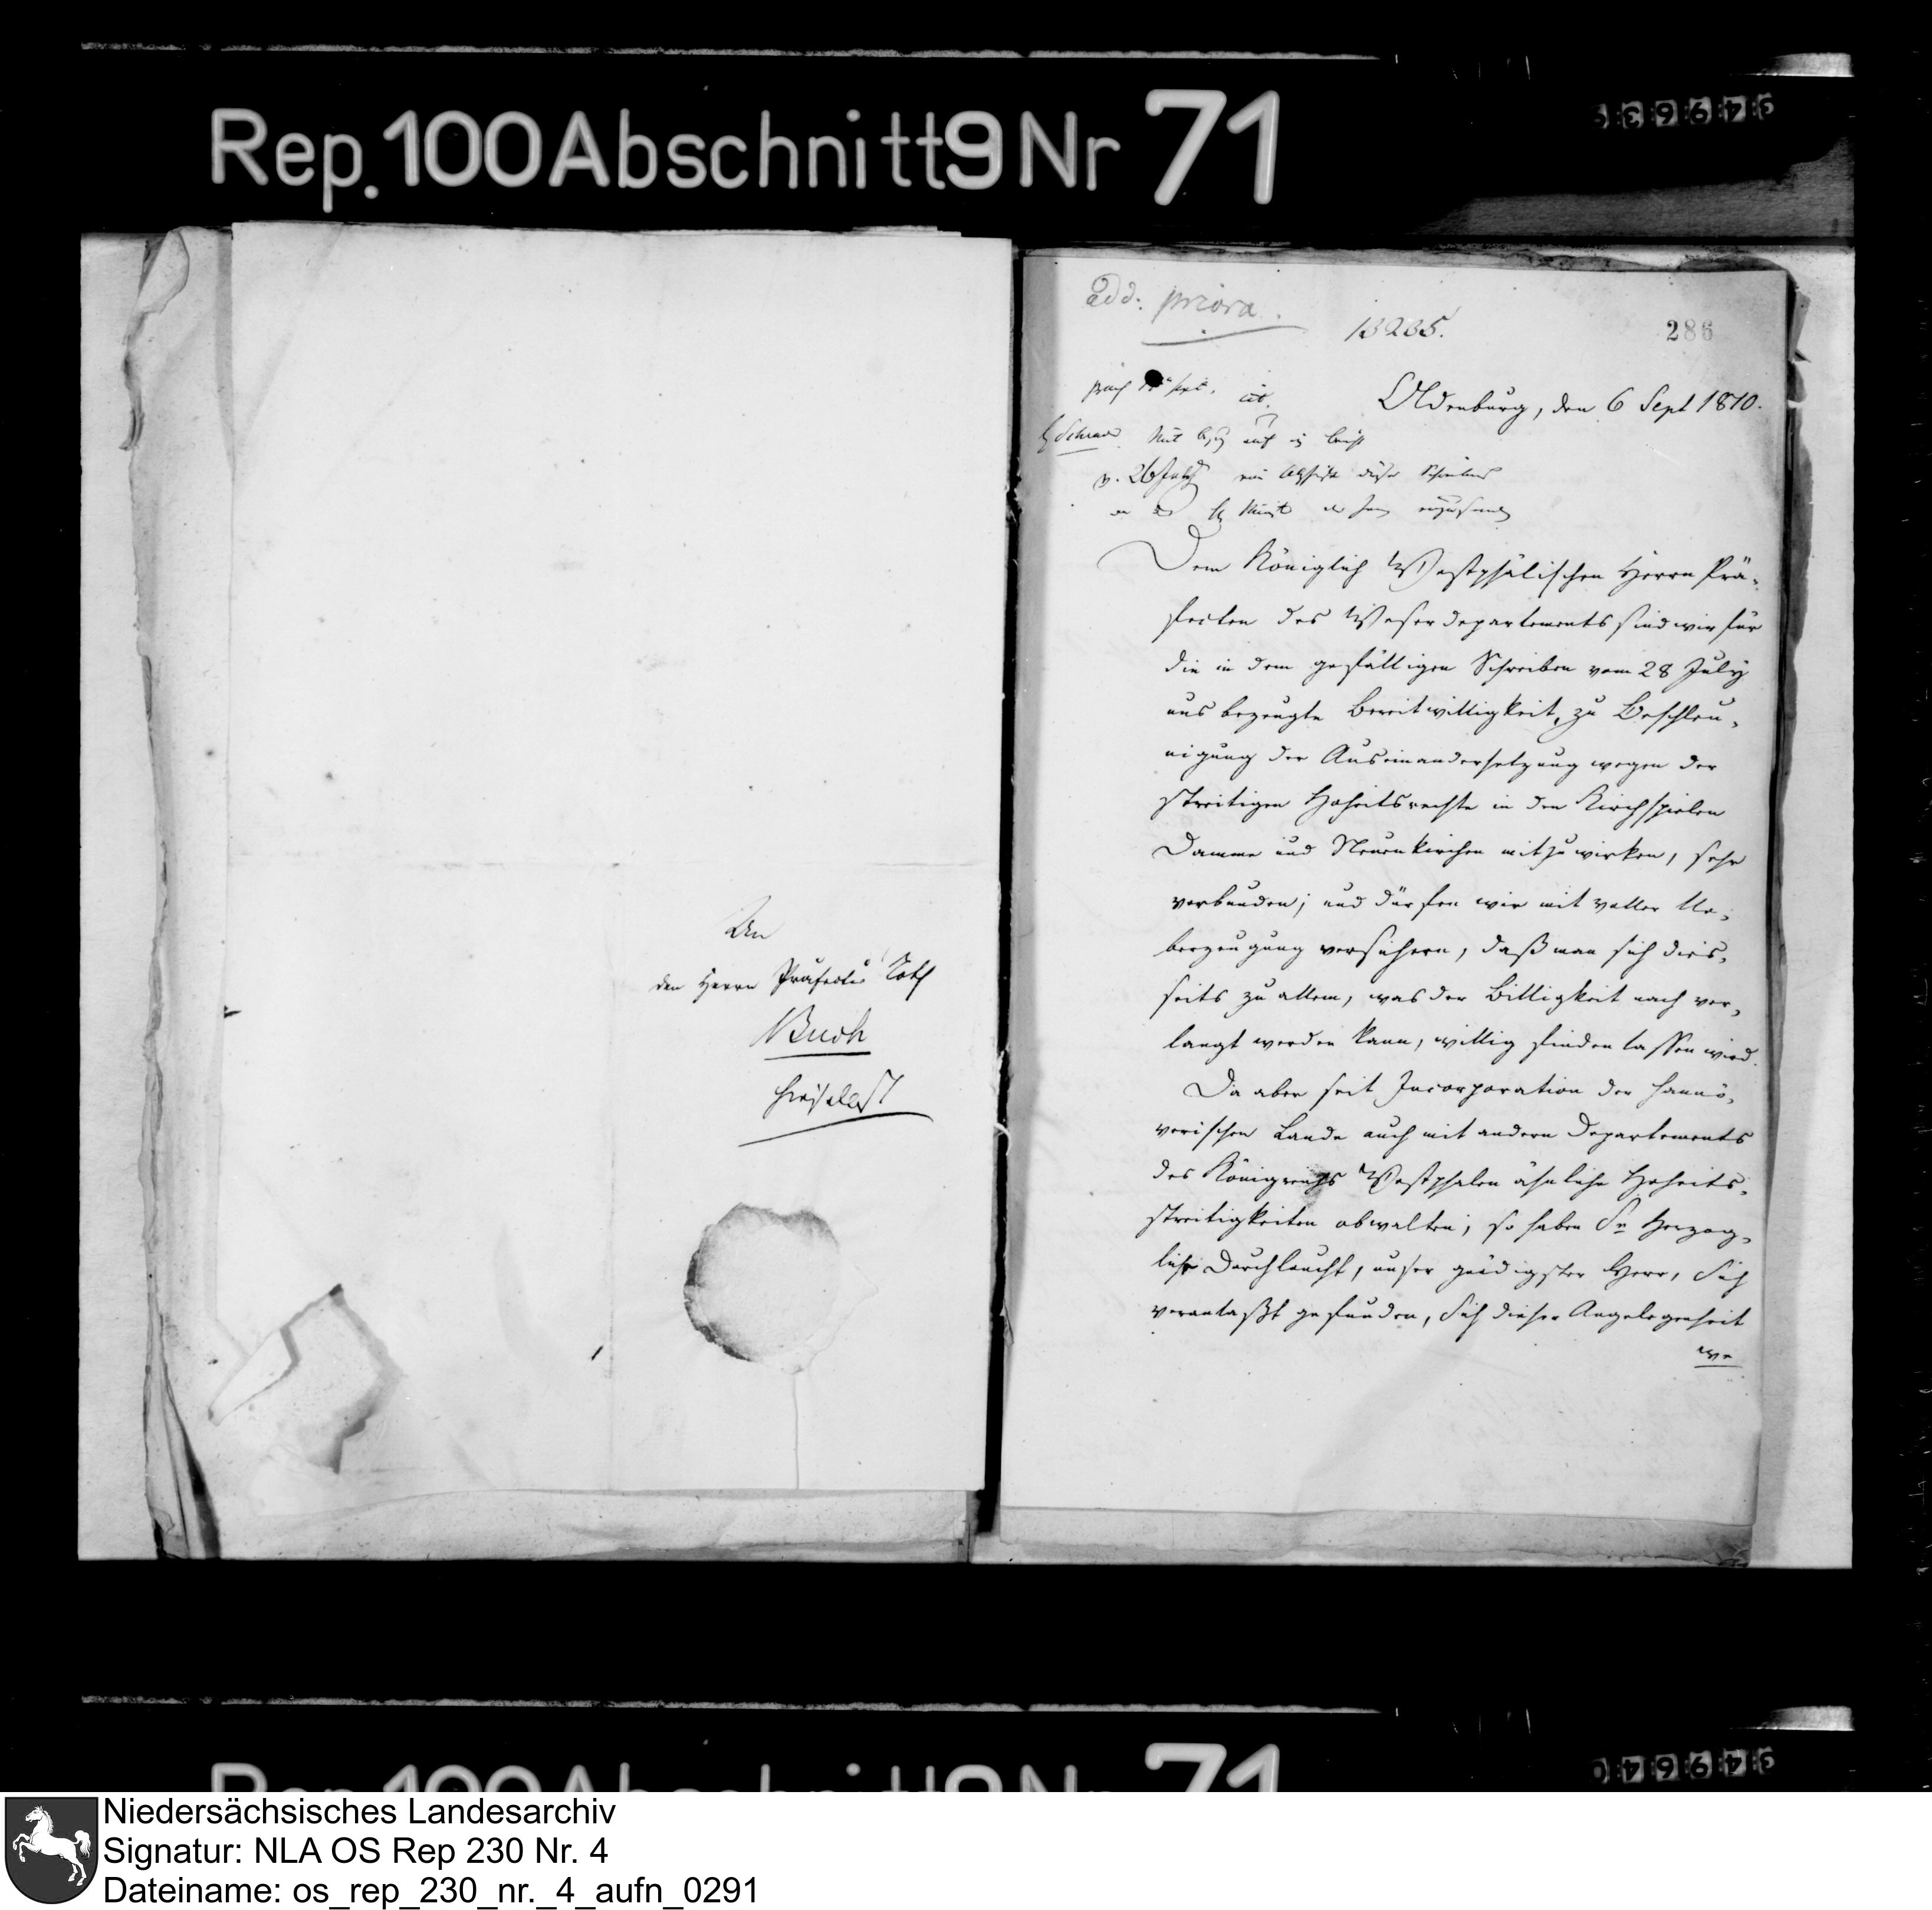 Rep. 100 Abschnitt 9 Nr 71
An
den Herrn Präfectur Rath
Buch
hieselbst
add: priora.
13235.
286
Oldenburg, den 6 Sept 1810.
Mit auf
v. 26 July Abschrift dieses Schreibens
Dem Königlich Westphälischen Herrn Prä-
fecten des Weserdepartements sind wir für
die in dem gefälligen Schreiben vom 28 July
uns bezeugte Bereitwilligkeit, zu Beschleu-
nigung der Auseinandersetzung wegen der
streitigen Hoheitsrechte in den Kirchspielen
Damme und Neuenkirchen mitzuwirken, sehr
verbunden; und dürfen wir mit voller Ue-
berzeugung versichern, daß man sich dies-
seits zu allem, was der Billigkeit nach ver-
langt werden kann, willig finden lassen wird.
Da aber seit Incorporation der hannö-
verischen Lande auch mit andern Departements
des Königreichs Westphalen ähnliche Hoheits-
streitigkeiten obwalten; so haben Se Herzog-
liche Durchlaucht, unser gnädigster Herr, Sich
veranlaßt gefunden, Sich dieser Angelegenheit
we
Niedersächsisches Landesarchiv
Signatur: NLA OS Rep 230 Nr. 4
Dateiname: os_rep_230_nr._4_aufn_0291